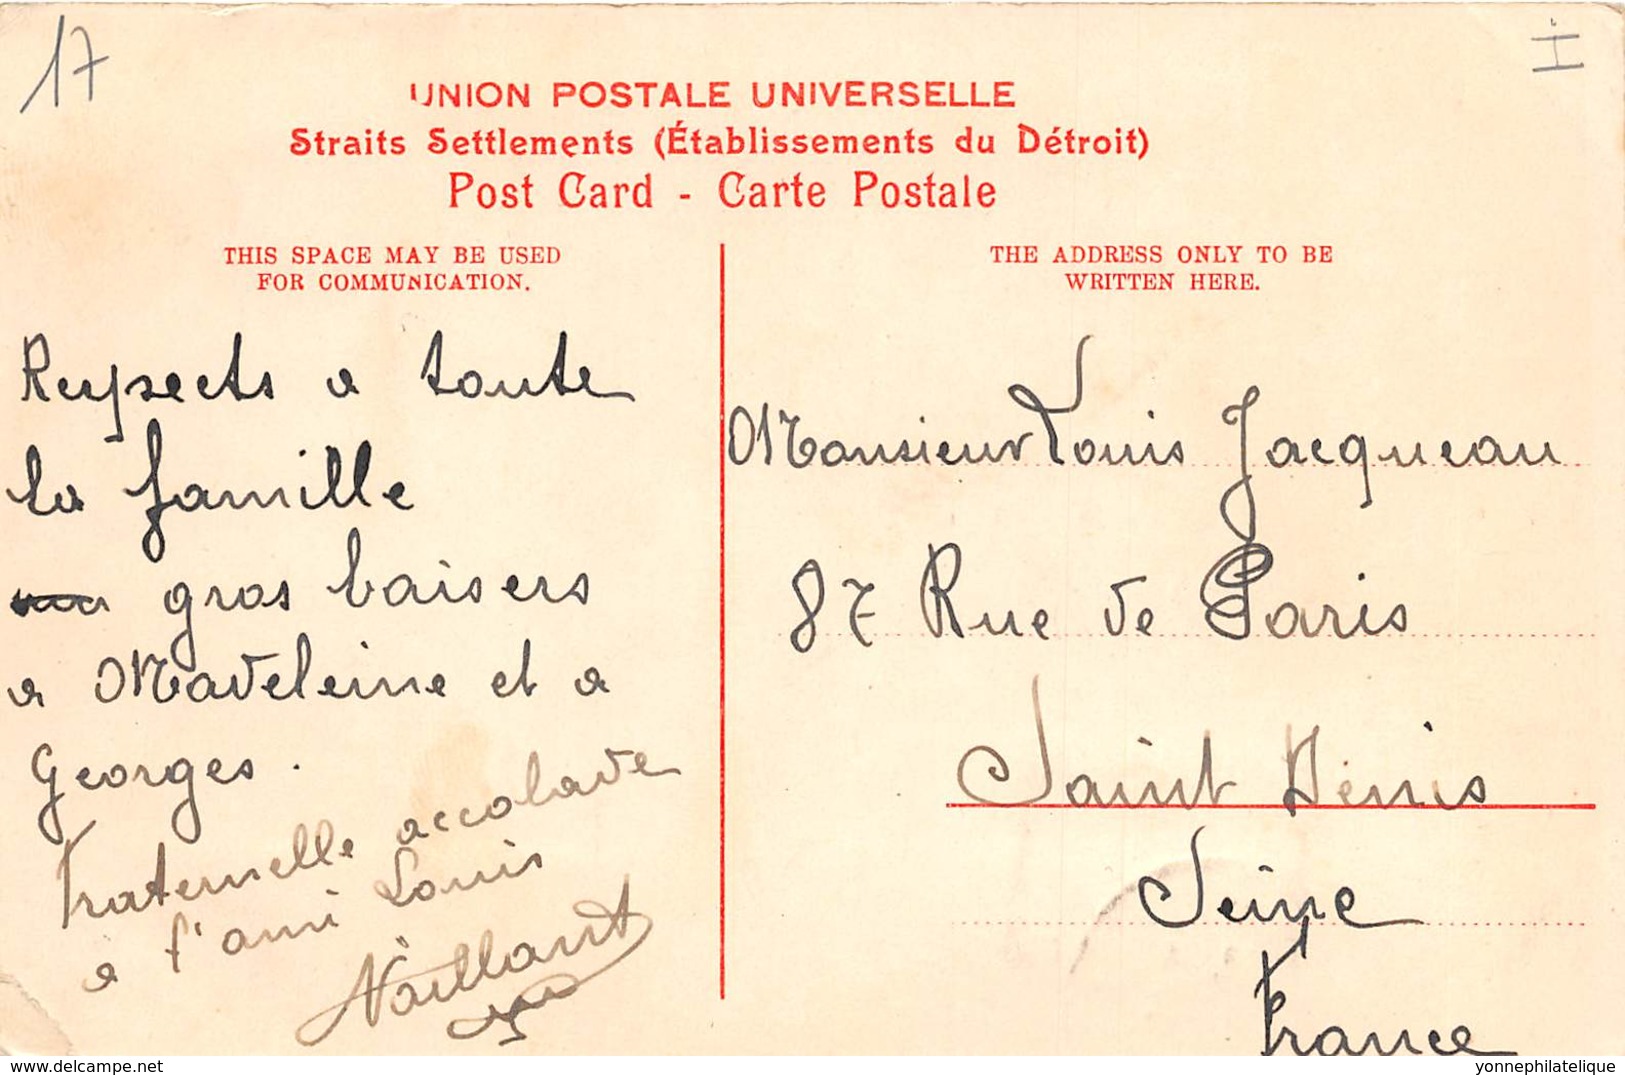 17
I
UNION POSTALE UNIVERSELLE
Straits Settlements (Établissements du Détroit)
Post Card - Carte Postale
THIS SPACE MAY BE USED
FOR COMMUNICATION.
Respects a toute
la famille
gros baisers
a Madeleine et a
Georges.
Fraternelle accolade
a l'ami Louis
Vaillant
THE ADDRESS ONLY TO BE
WRITTEN HERE.
Monsieur Louis Jacqueau
87 Rue de Paris
Saint Denis
Seine
France
delcampe.net
yonnephilatelique